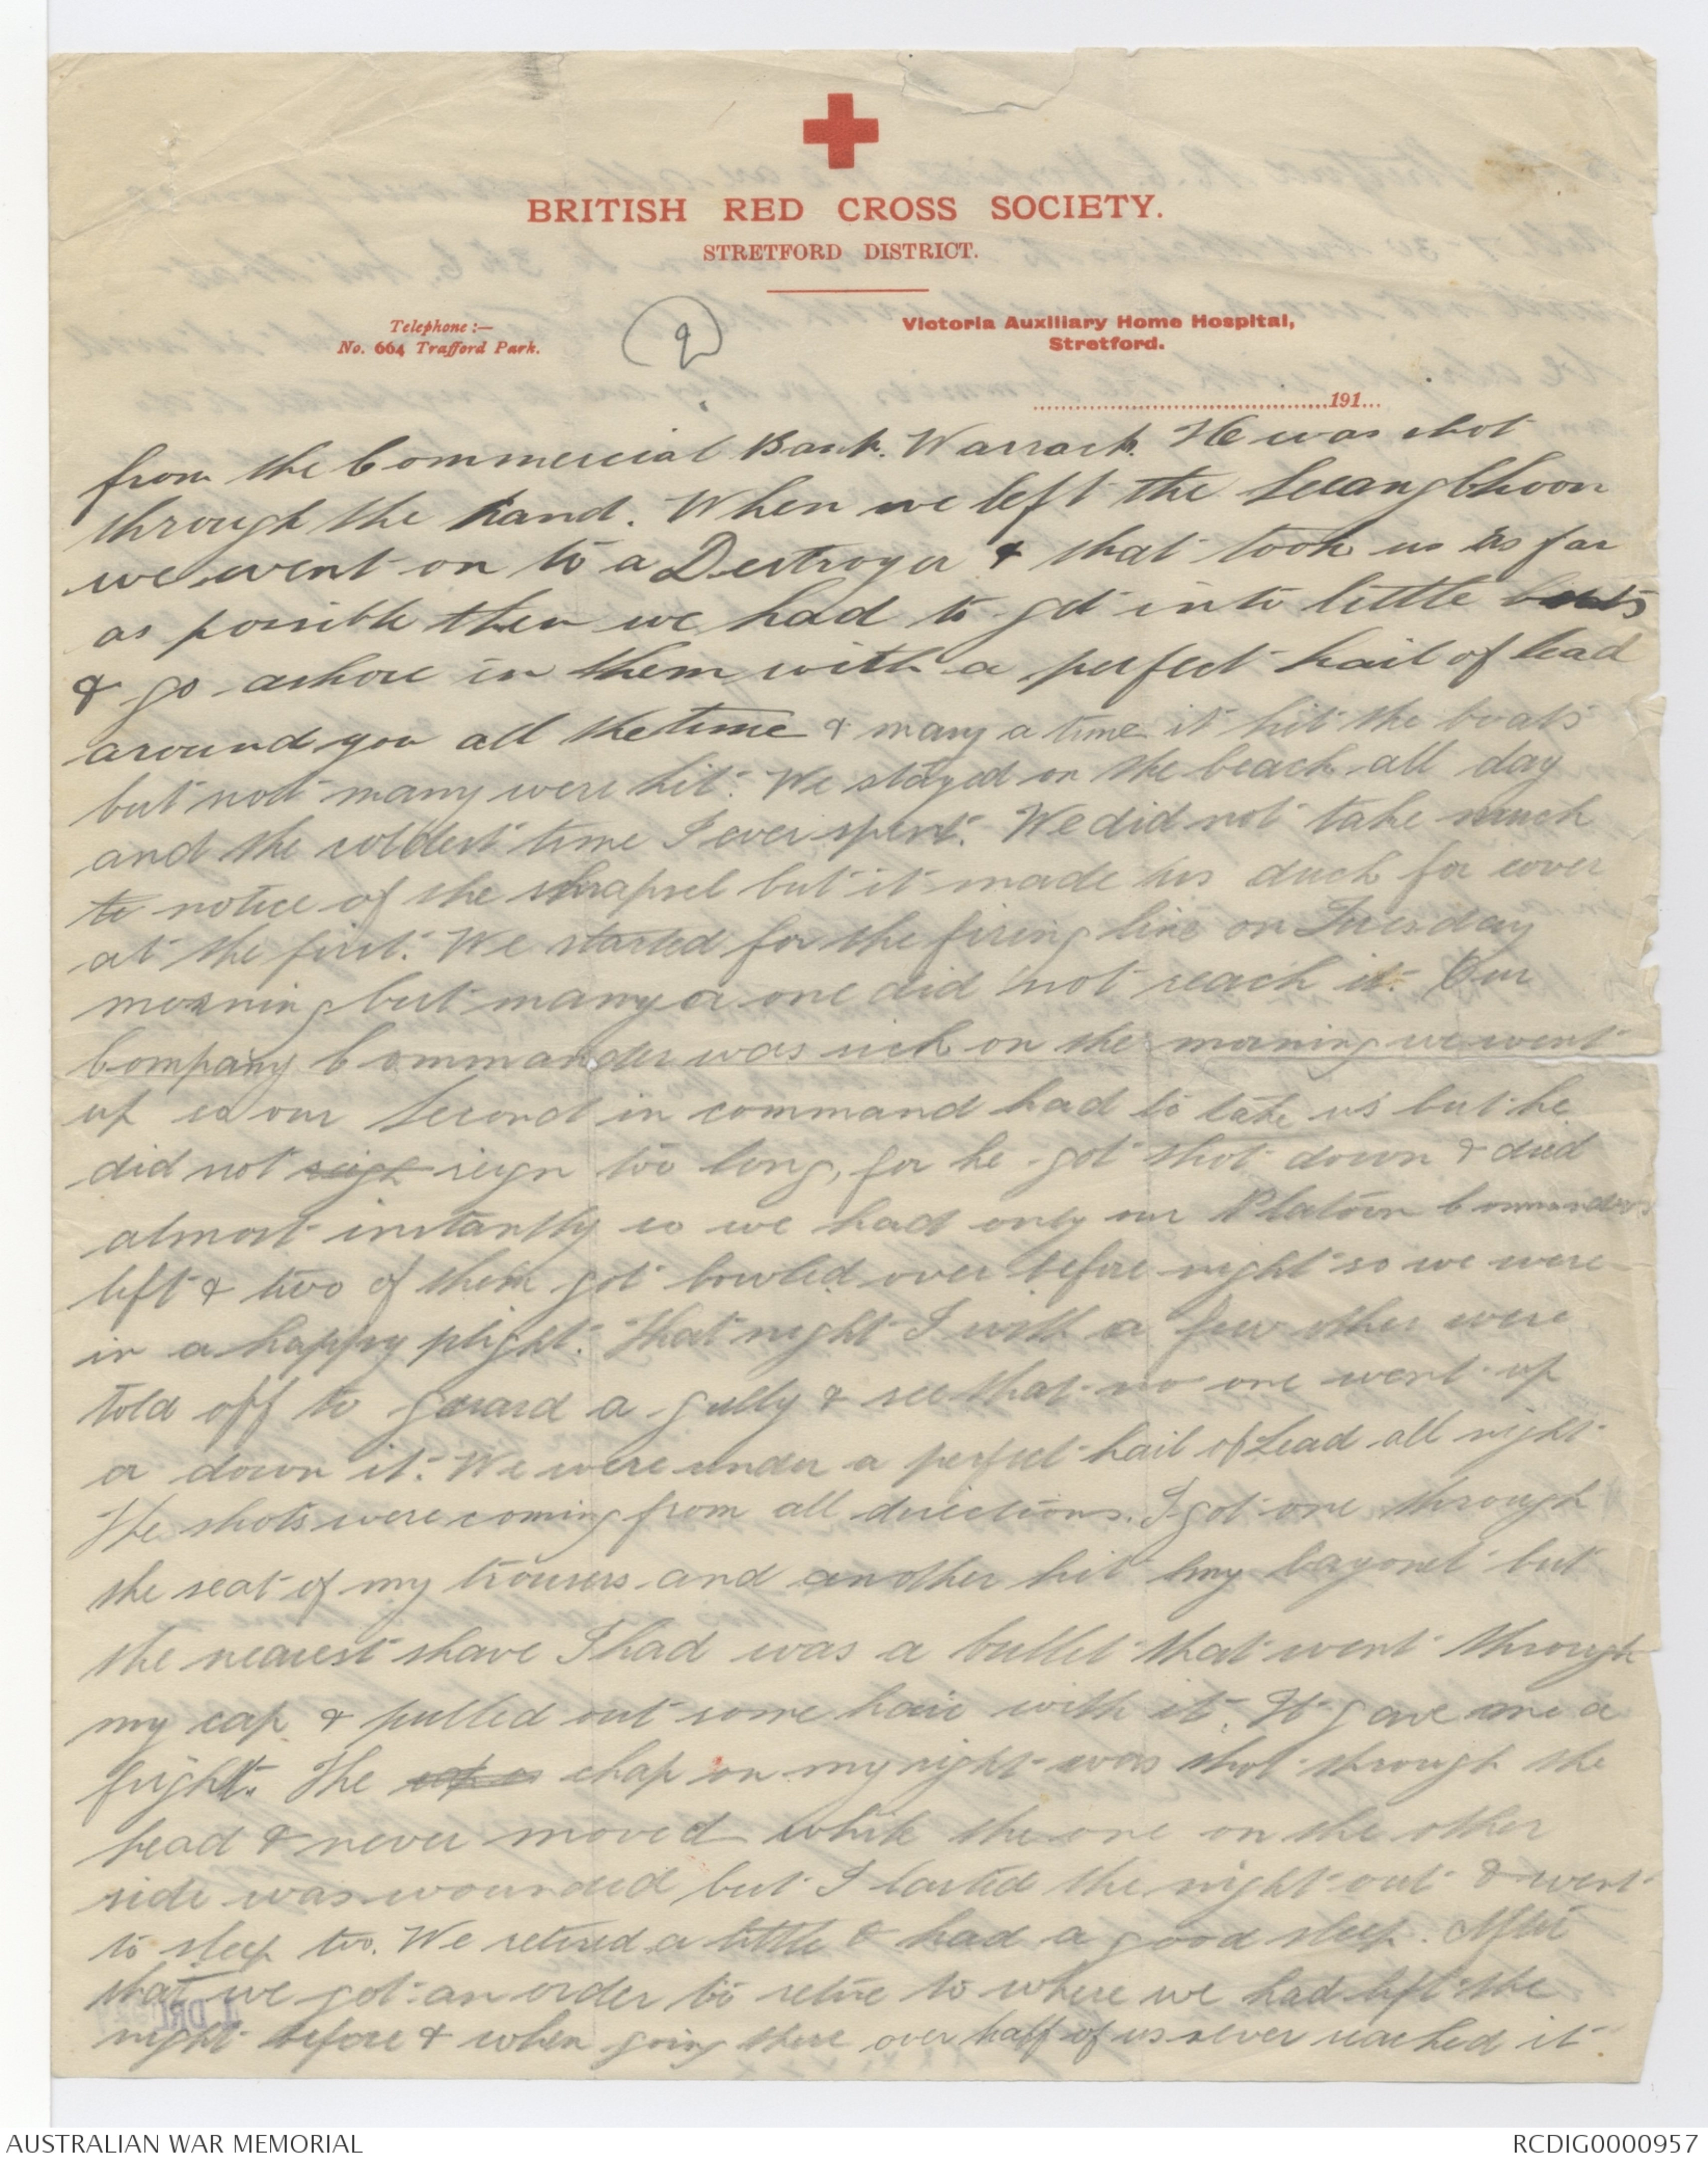 BRITISH RED CROSS SOCIETY.
STRETFORD DISTRICT.
Telephone :—
No. 664 Trafford Park.
2
Victoria Auxiliary Home Hospital,
Stretford.
191...
from the Commercial Bank. Warrack. He was shot
through the hand. When we left the Seeangbhoon
we went on to a Destroyer & that took us as far
as possible then we had to get into little boats
& go ashore in them with a perfect hail of lead
around you all the time & many a time it hit the boats
but not many were hit. We stayed on the beach all day
and the coldest time I ever spent. We did not take much
to notice of the shrapnel but it made us duck for cover
at the first. We started for the firing line on Tuesday
morning but many a one did not reach it. Our
Company Commander was sick on the morning we went
up so our Second in command had to take us but he
did not reign too long, for he got shot down & died
almost instantly so we had only our Platoon Commanders
left & two of them got bowled over before night so we were
in a happy plight. That night I with a few other were
told off to guard a gully & see that no one went up
or down it. We were under a perfect hail of Lead all night
The shots were coming from all directions. I got one through
the seat of my trousers and another hit my bayonet but
the nearest shave I had was a bullet that went through
my cap & pulled out some hair with it. It gave me a
fright. The chap on my right was shot through the
head & never moved while the one on the other
side was wounded but I lasted the night out & went
to sleep too. We retired a little & had a good sleep. After
that we got an order to retire to where we had left the
night before & when going there over half of us never reached it.
AUSTRALIAN WAR MEMORIAL
RCDIG0000957